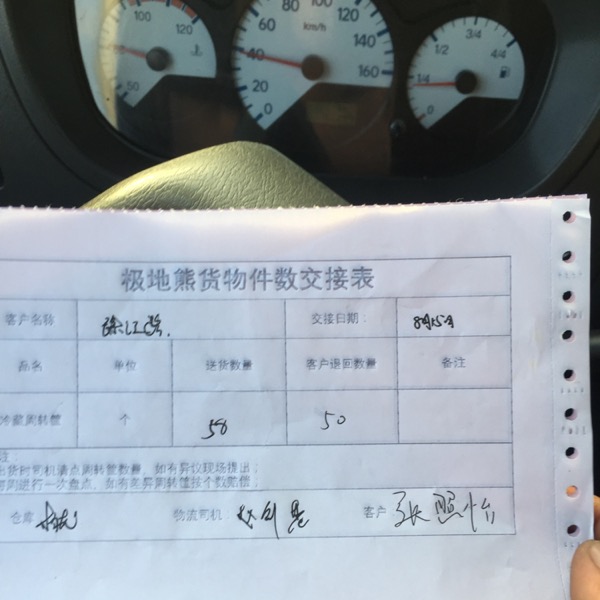 50 100 120
0 20 40 60 80 100 120 140 160 km/h
0 1/4 3/4 4/4
极地熊货物件数交接表
客户名称 交接日期：
品名 单位 送货数量 客户退回数量 备注
冷藏周转筐 个 58 50
注：
出货时司机清点周转筐数量，如有异议现场提出；
每周进行一次盘点，如有差异周转筐按个数赔偿；
仓库 物流司机： 客户 张照怡